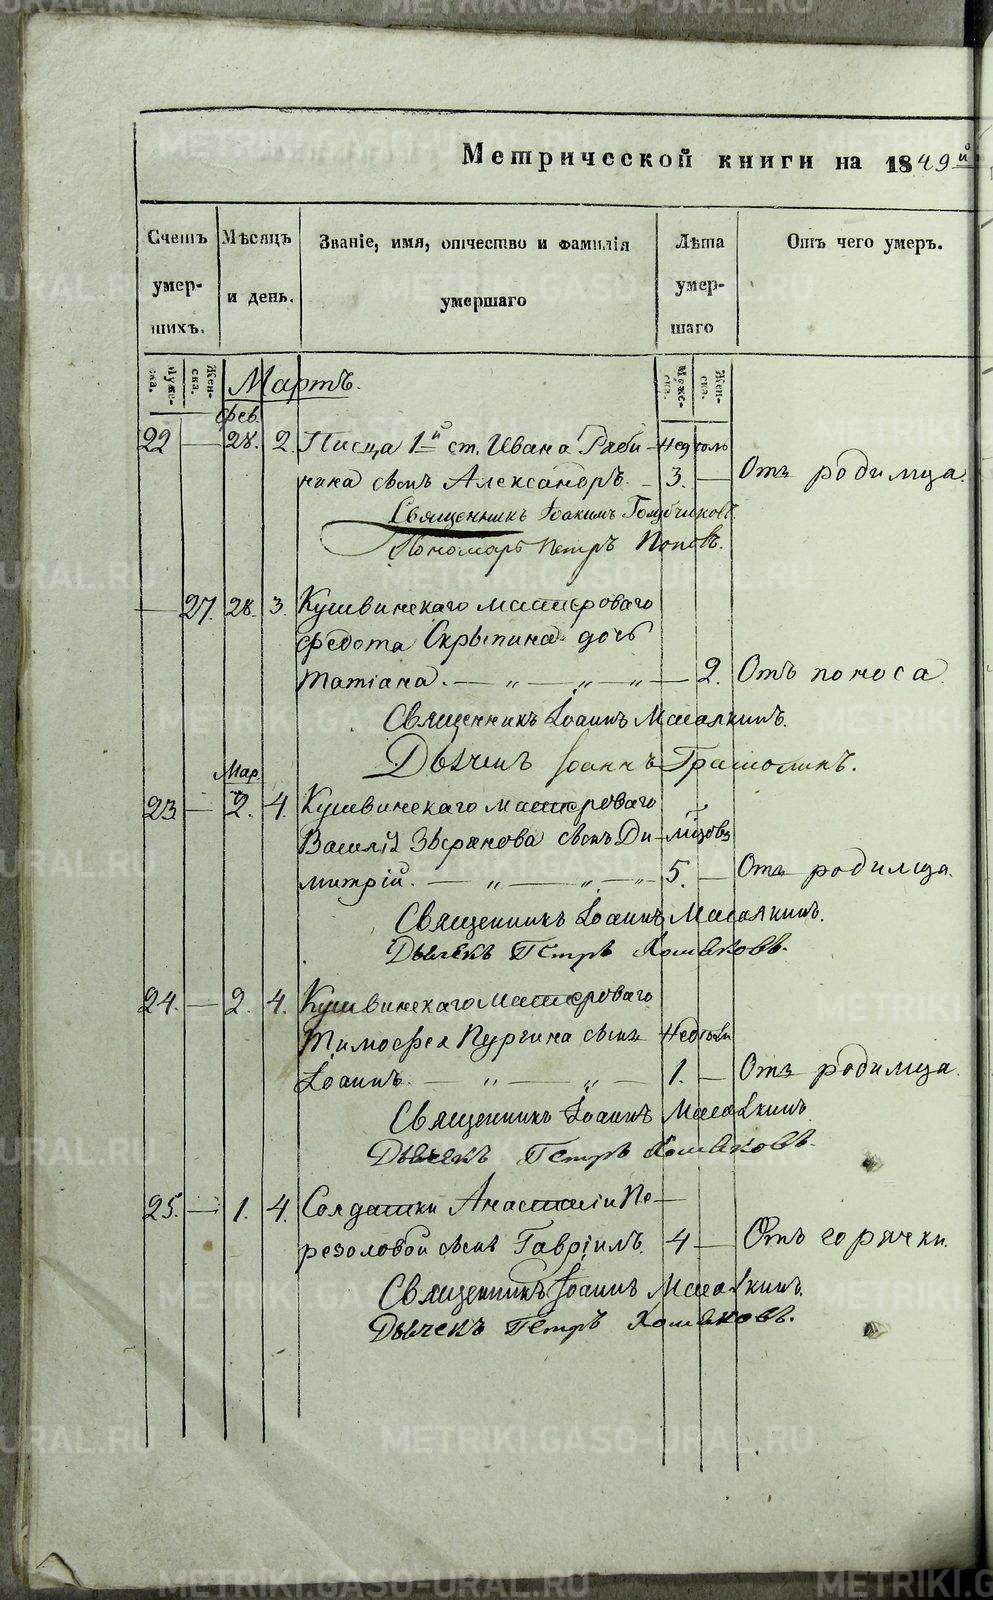 METRIKI.GASO-URAL.RU
Метрической книги на 1849й
Счетъ умер- шихъ.
Мѣсяцъ и день.
Званіе, имя, отчество и фамилія умершаго
Лѣта умер- шаго
Отъ чего умеръ.
Муже- ска.
Жен- ска.
Мартъ.
Муже- ска.
Жен- ска.
Фев.
22 — 28. 2. Писца 1й ст. Ивана Ряби-
нина сынъ Александръ. — 3. — Отъ родимца.
Священникъ Іоакимъ
Пономарь Петръ Поповъ.
— 27. 28. 3. Кушвинскаго мастероваго
Федота Скрыпина дочь
Татіана. — „ — „ — „ — 2. Отъ поноса.
Священникъ Іоаннъ Масалкинъ.
Дьячекъ Іоаннъ
Мар.
23 — 2. 4. Кушвинскаго мастероваго
Василія Звѣрянова сынъ Ди-
митрій. — „ — „ — „ — 5. — Отъ родимца.
Священникъ Іоаннъ Масалкинъ.
Дьячекъ Петръ Хомяковъ.
24. — 2. 4. Кушвинскаго мастероваго
Тимофея Пургина сынъ Недѣли
Іоаннъ. — „ — „ — 1. — Отъ родимца.
Священникъ Іоаннъ Масалкинъ
Дьячекъ Петръ Хомяковъ.
25. — 1. 4. Солдатки Анастасіи Пе-
резоловой сынъ Гавріилъ. 4 — Отъ горячки.
Священникъ Іоаннъ Масалкинъ.
Дьячекъ Петръ Хомяковъ.